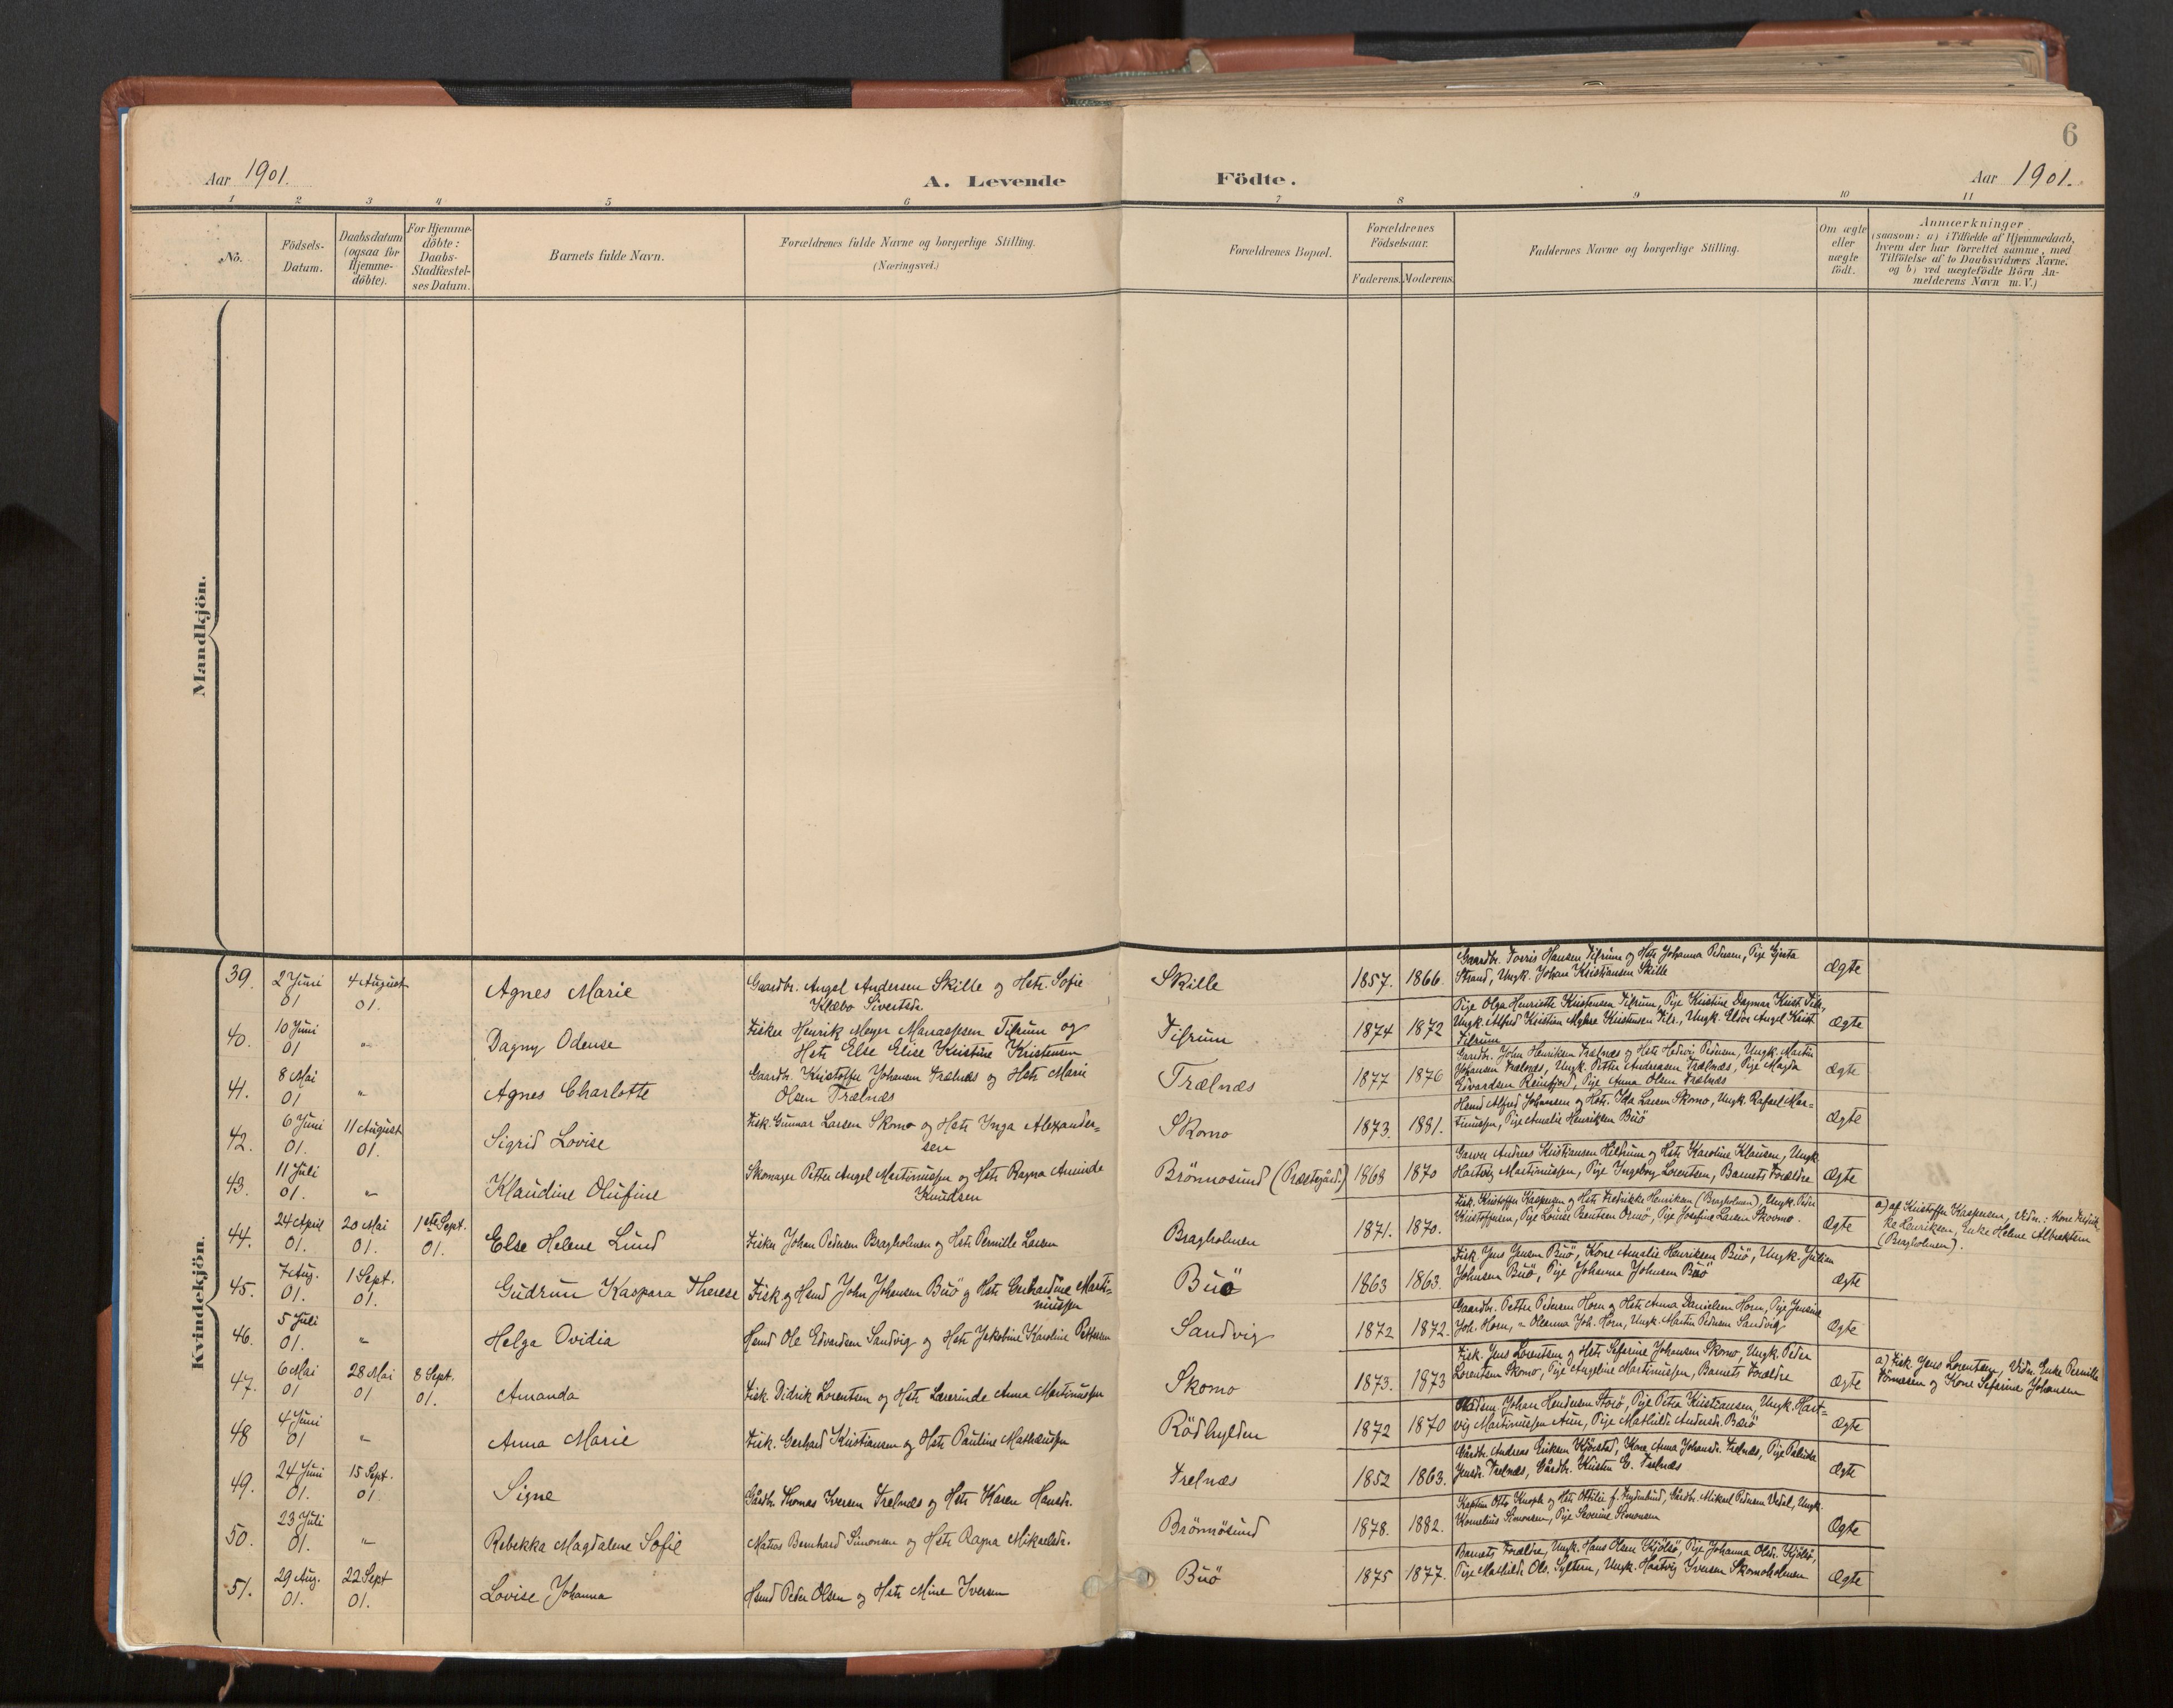 6
Aar 1901.
A. Levende
Födte.
Aar 1901.
1 2 3 4 5 6 7 8 9 10 11
No.
Födsels-
Datum.
Daabsdatum
(ogsaa for
Hjemme-
döbte).
For Hjemme-
döbte:
Daabs-
Stadfæstel-
ses Datum.
Barnets fulde Navn.
Forældrenes fulde Navne og borgerlige Stilling.
(Næringsvei.)
Forældrenes Bopæl.
Forældrenes
Födselsaar.
Faderens. Moderens.
Faddernes Navne og borgerlige Stilling.
Om ægte
eller
uægte
födt.
Anmærkninger
(saasom: a) i Tilfælde af Hjemmedaab,
hvem der har forrettet samme, med
Tilföielse af to Daabsvidners Navne.
og b) ved uægtefödte Börn An-
melderens Navn m. V.)
Mandkjön.
Kvindekjön.
39. 2 Juni 01 4 August 01. Agnes Marie
Gaardbr. Angel Andersen Skille og Hstr. Sofie
Klæbo Sivertsdr.
Skille 1857. 1866.
Gaardbr. Hansen Tilrum og Hstr Johanna Pedersen, Pige
Strand, Ungk. Johan Kristiansen Skille
Ægte
40. 10 Juni 01 " Dagny Odense
Fisker Henrik Meyer Manassesen Tilrum og
Hstr Else Elise Kristine Kristensen
Tilrum 1874 1872
Pige Olga Henriette Kristensen Tilrum, Pige Kristine Dagmar Krist. Tilr.,
Ungk. Alfred Kristian Kristensen Tilr., Ungk. Angel Krist
Tilrum
Ægte
41. 8 Mai 01 " Agnes Charlotte
Gaardbr. Kristoffer Johansen Trælnæs og Hstr Marie
Olsen Trælnæs
Trælnæs 1877 1876
Gaardbr. John Henriksen Trælnæs og Hstr Hedvig Pedersen, Ungk. Martin
Johansen Trælnæs, Ungk. Petter Andreasen Trælnæs, Pige Magda
Edvardsen Reinfjord, Pige Anna Olsen Trælnæs
Ægte
42. 6 Juni 01. 11 August 01. Sigrid Lovise
Fisk. Gunnar Larsen Skomo og Hstr Inga Alexander=
sen
Skomo 1873. 1881.
Hsmd Alfred Johansen og Hstr. Ida Larsen Skomo, Ungk. Rafael Mar=
tinussen, Pige Amalie Henriksen Buö
Ægte
43. 11 Juli 01. " Klaudine Olufine
Skomager Petter Angel Martinussen og Hstr Ragna Aminda
Knudsen
Brönnosund (Præstegård.) 1868 1870
Garver Andreas Kristiansen Hildrum og Hstr Karoline Klausen, Ungk.
Hartvig Martinussen, Pige Ingeborg Lorentsen, Barnets Forældre
Ægte
44. 24 April 01. 20 Mai 01. 1ste Sept. 01. Else Helene Lund
Fisker Johan Pedersen Bragholmen og Hstr Pernille Larsen
Bragholmen 1871. 1870.
Fisk. Kristoffer Kaspersen og Hstr Fredrikke Henriksen (Bragholmen), Ungk. Peder
Kristoffersen, Pige Louise Berntsen Ormö, Pige Josefine Larsen Skoomo.
Ægte
a) af Kristoffer Kaspersen, Vidn.: Kone Fredrik-
ke Henriksen, Enke Helene Albrektsen
(Bragholmen).
45. 7 Aug. 01. 1 Sept. 01. Gudrun Kaspara Therese
Fisk. og Hsmd John Johansen Buö og Hstr Gerhardine Marti=
nussen
Buö 1863 1863.
Fisk. Jens Jensen Buö, Kone Amalie Henriksen Buö, Ungk. Julian
Johnsen Buö, Pige Johanna Johnsen Buö
Ægte
46. 5 Juli 01. " Helga Ovidia
Hsmd Ole Edvardsen Sandvig og Hstr Jakobine Karoline Pettersen
Sandvig 1872 1872.
Gaardbr. Petter Pedersen Horn og Hstr Anna Danielsen Horn, Pige Jensine
Joh. Horn, " Oleanna Joh. Horn, Ungk. Martin Pedersen Sandvig
Ægte
47. 6 Mai 01 28 Mai 01 8 Sept. 01. Amanda
Fisk. Didrik Lorentsen og Hstr Laverinde Anna Martinussen
Skomo 1873. 1873
Fisk. Jens Lorentsen og Hstr Sefarine Johansen Skomo, Ungk. Peder
Lorentsen Skomo, Pige Angeline Martinussen, Barnets Forældre
Ægte
a) Fisk. Jens Lorentsen, Vidn. Enke Pernille
og Kone Sefarine Johansen
48 4 Juni 01 " Anna Marie
Fisk. Gerhard Kristiansen og Hstr Pauline Mathæussen
Rödhylden 1872 1870
Johan Hendersen Storö, Pige Petra Kristiansen, Ungk. Hart=
vig Martinussen Aun, Pige Mathilde Andersdr. Bærö
Ægte
49. 24 Juni 01. 15 Sept. 01. Signe
Gårdbr. Thomas Iversen Trelnæs og Hstr Karen Hansdr.
Trelnæs 1852 1863.
Gårdbr. Andreas Eriksen Kjörstad, Kone Anna Johansdr. Trelnæs, Pige
Jensdr. Trelnæs, Gårdbr. Kristen E. Trelnæs
Ægte
50. 23 Juli 01. " Rebekka Magdalene Sofie
Matros Bernhard Simonsen og Hstr Ragna Mikaelsdr.
Brönnösund 1878. 1882.
Kaptein Otto Knoph og Hstr Ottilie f. Frydenlund, Gårdbr. Mikael Pedersen Vedal, Ungk.
Kornelius Simonsen, Pige Severine Simonsen
Ægte
51. 29 Aug. 01. 22 Sept 01. Lovise Johanna
Hsmd Peder Olsen og Hstr Mine Iversen
Buö 1875 1877.
Barnets Forældre, Ungk. Hans Olsen Kjölsö, Pige Johanna Olsdr. Kjölsö,
Pige Mathilde Ols. Sylteren, Ungk. Hartvig Iversen Skomoholmen
Ægte